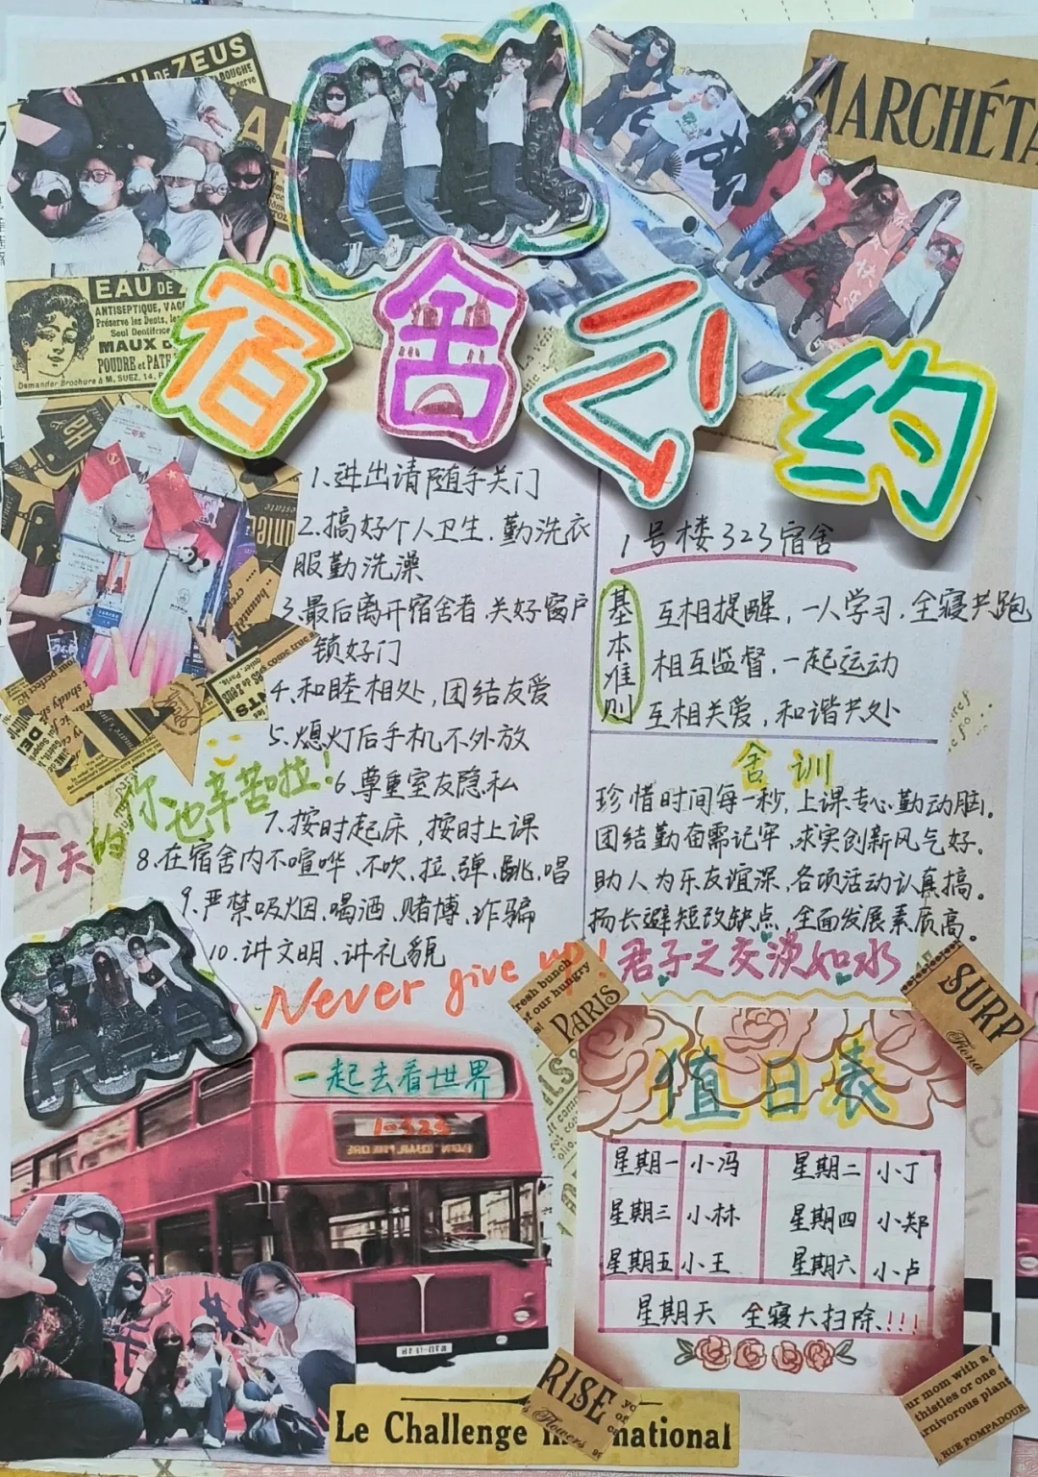 EAU DE ZEUS
MARCHÉTA
EAU DE
ANTISEPTIQUE, VAC
Préserve les Dents, les
Seul Dentifrice
MAUX D
POUDRE et PAT
Demander Brochure à M. SUEZ, 14, R
宿舍公约
1.进出请随手关门
2.搞好个人卫生.勤洗衣
服勤洗澡
3.最后离开宿舍者.关好窗户
锁好门
4.和睦相处,团结友爱
5.熄灯后手机不外放
6.尊重室友隐私
7.按时起床,按时上课
8.在宿舍内不喧哗、不吹、拉、弹、跳、唱
9.严禁吸烟、喝酒、赌博、诈骗
10.讲文明、讲礼貌
今天的你也辛苦啦!
Never give up!
1号楼323宿舍
基本准则
互相提醒,一人学习.全寝共跑
相互监督,一起运动
互相关爱,和谐共处
舍训
珍惜时间每一秒,上课专心勤动脑.
团结勤奋需记牢,求实创新风气好.
助人为乐友谊深,各项活动认真搞。
扬长避短改缺点,全面发展素质高。
君子之交淡如水
resh bunch
of our hungry
PARIS
SURP
一起去看世界
1-323
值日表
星期一 小冯 星期二 小丁
星期三 小林 星期四 小郑
星期五 小王 星期六 小卢
星期天 全寝大扫除!!!
RISE
Le Challenge
national
ur mom with a
thistles or one
rnivorous plant
RUE POMPADOUR